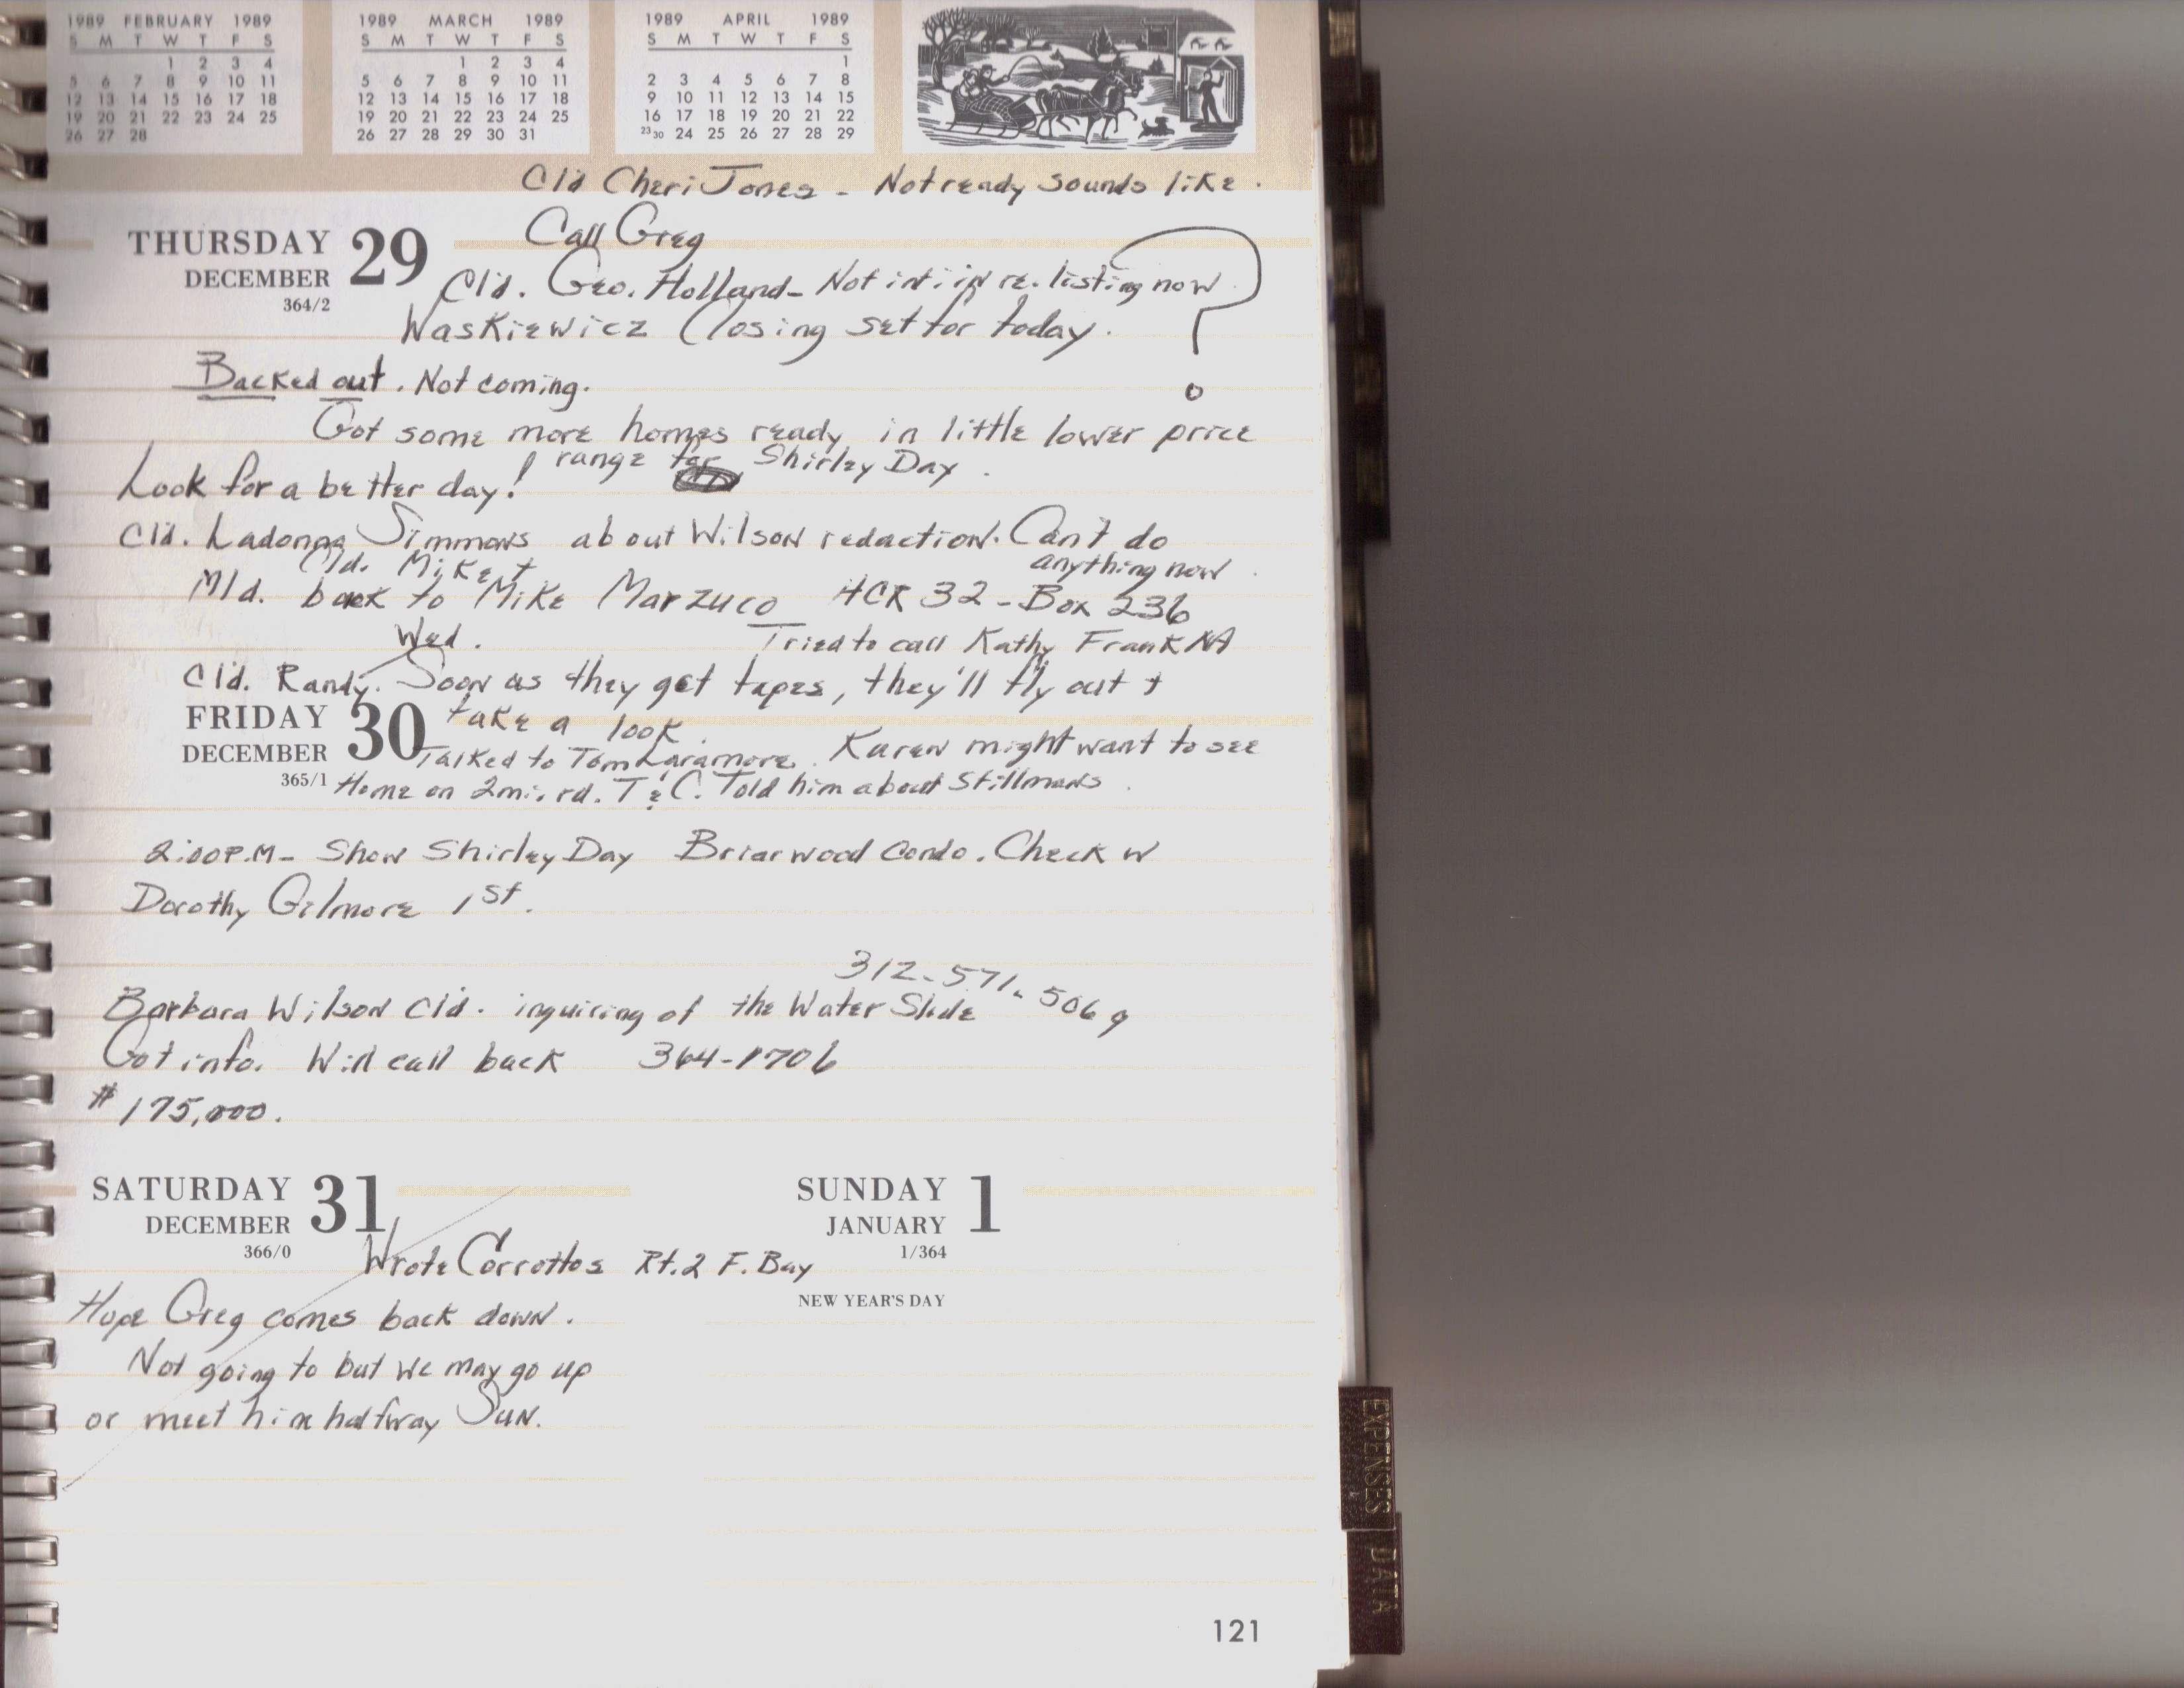 1989 FEBRUARY 1989
S M T W T F S
1 2 3 4
5 6 7 8 9 10 11
12 13 14 15 16 17 18
19 20 21 22 23 24 25
26 27 28
1989 MARCH 1989
S M T W T F S
1 2 3 4
5 6 7 8 9 10 11
12 13 14 15 16 17 18
19 20 21 22 23 24 25
26 27 28 29 30 31
1989 APRIL 1989
S M T W T F S
1
2 3 4 5 6 7 8
9 10 11 12 13 14 15
16 17 18 19 20 21 22
23 30 24 25 26 27 28 29
Cld Cheri Jones - Not ready sounds like.
Call Greg
THURSDAY 29
DECEMBER
364/2
Cld. Geo. Holland - Not int. in re. listing now ?
Waskiewicz Closing set for today.
Backed out. Not coming.
Got some more homes ready in little lower price
range for Shirley Day.
Look for a better day!
Cld. Ladonna Simmons about Wilson redaction. Can't do
anything now.
Cld. Mike +
Mld. back to Mike Marzuco HCR 32 - Box 236
Wed. Tried to call Kathy Frank NA
Cld. Randy. Soon as they get tapes, they'll fly out +
take a look.
FRIDAY 30
DECEMBER
365/1
Talked to Tom Laramore. Karen might want to see
Home on 2 mi. rd. T & C. Told him about Stillmans.
2:00 P.M - Show Shirley Day Briarwood Condo. Check w
Dorothy Gilmore 1st.
312-571-5069
Barbara Wilson Cld. inquiring of the Water Slide
Got info. Will call back 364-1706
$175,000.
SATURDAY 31
DECEMBER
366/0
SUNDAY 1
JANUARY
1/364
NEW YEAR'S DAY
Wrote Corrottos Rt. 2 F. Bay
Hope Greg comes back down.
Not going to but we may go up
or meet him halfway Sun.
EXPENSES
DATA
121